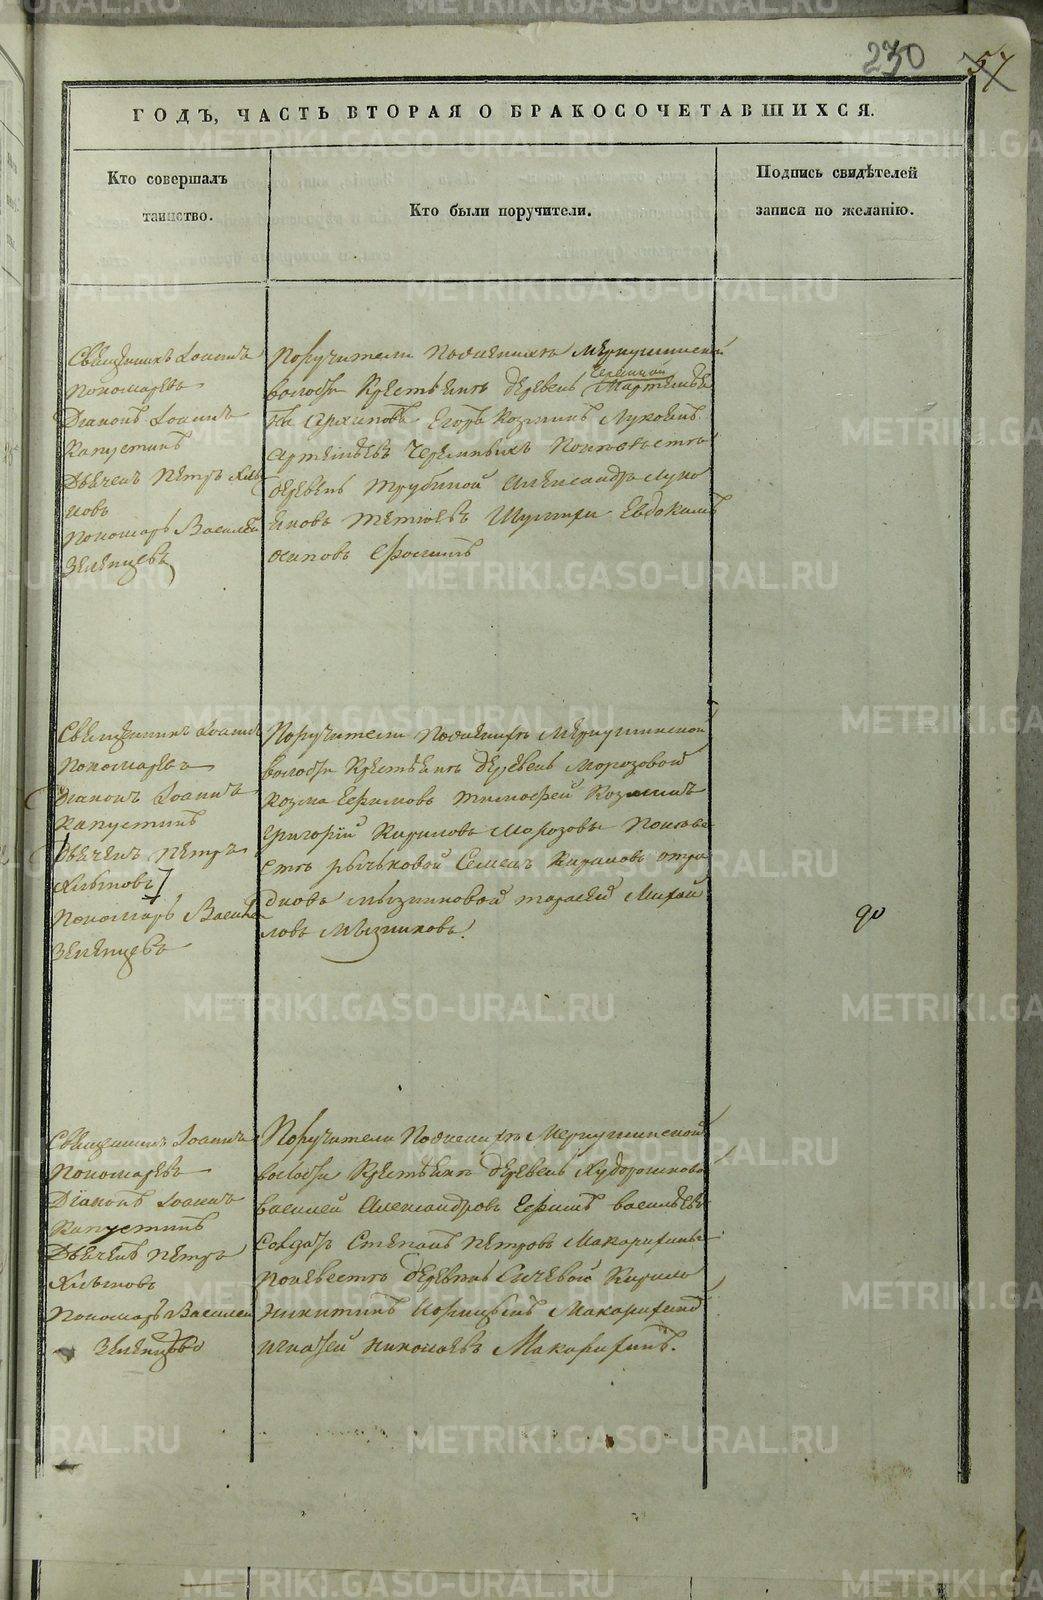 230 57
ГОДЪ, ЧАСТЬ ВТОРАЯ О БРАКОСОЧЕТАВШИХСЯ.
Кто совершалъ
таинство.
Кто были поручители.
Подпись свидѣтелей
записи по желанію.
Священникъ Іоаннъ
Пономаревъ
Діаконъ Іоаннъ
Капустинъ
Дьячекъ Петръ Хлы
новъ
Пономарь Василей
Зеленцовъ
Поручители По женихѣ Меркушинской
волости Крестьянъ деревень Черемной
Архиповъ Егоръ Козминъ Лукоянъ
Артемьевъ Черемныхъ По невѣстѣ
деревень Трубиной Александръ Луко
яновъ Евдокимъ
Осиповъ Фоминъ
Священникъ Іоаннъ
Пономаревъ
Діаконъ Іоаннъ
Капустинъ
Дьячекъ Петръ
Хлыновъ
Пономарь Василей
Зеленцовъ
Поручители По женихѣ Меркушинской
волости Крестьянъ деревень Морозовой
Козма Ефимовъ Тимофей Козминъ
Григорій Кириловъ Морозовы По невѣ
стѣ Рычковой Семенъ Кириловъ Отра
дновъ Мызниковой Тарасей Михай
ловъ Мызниковъ.
Священникъ Іоаннъ
Пономаревъ
Діаконъ Іоаннъ
Капустинъ
Дьячекъ Петръ
Хлыновъ
Пономарь Василей
Зеленцовъ
Поручители По женихѣ Меркушинской
волости Крестьянъ деревень
Василей Александровъ Ефимъ Васильевъ
Солдатъ Степанъ Петровъ Макарихины
По невестѣ деревень Сичевой Кирило
Никитинъ Макарихинъ
Игнатей Николаевъ Макарихинъ.
METRIKI.GASO-URAL.RU